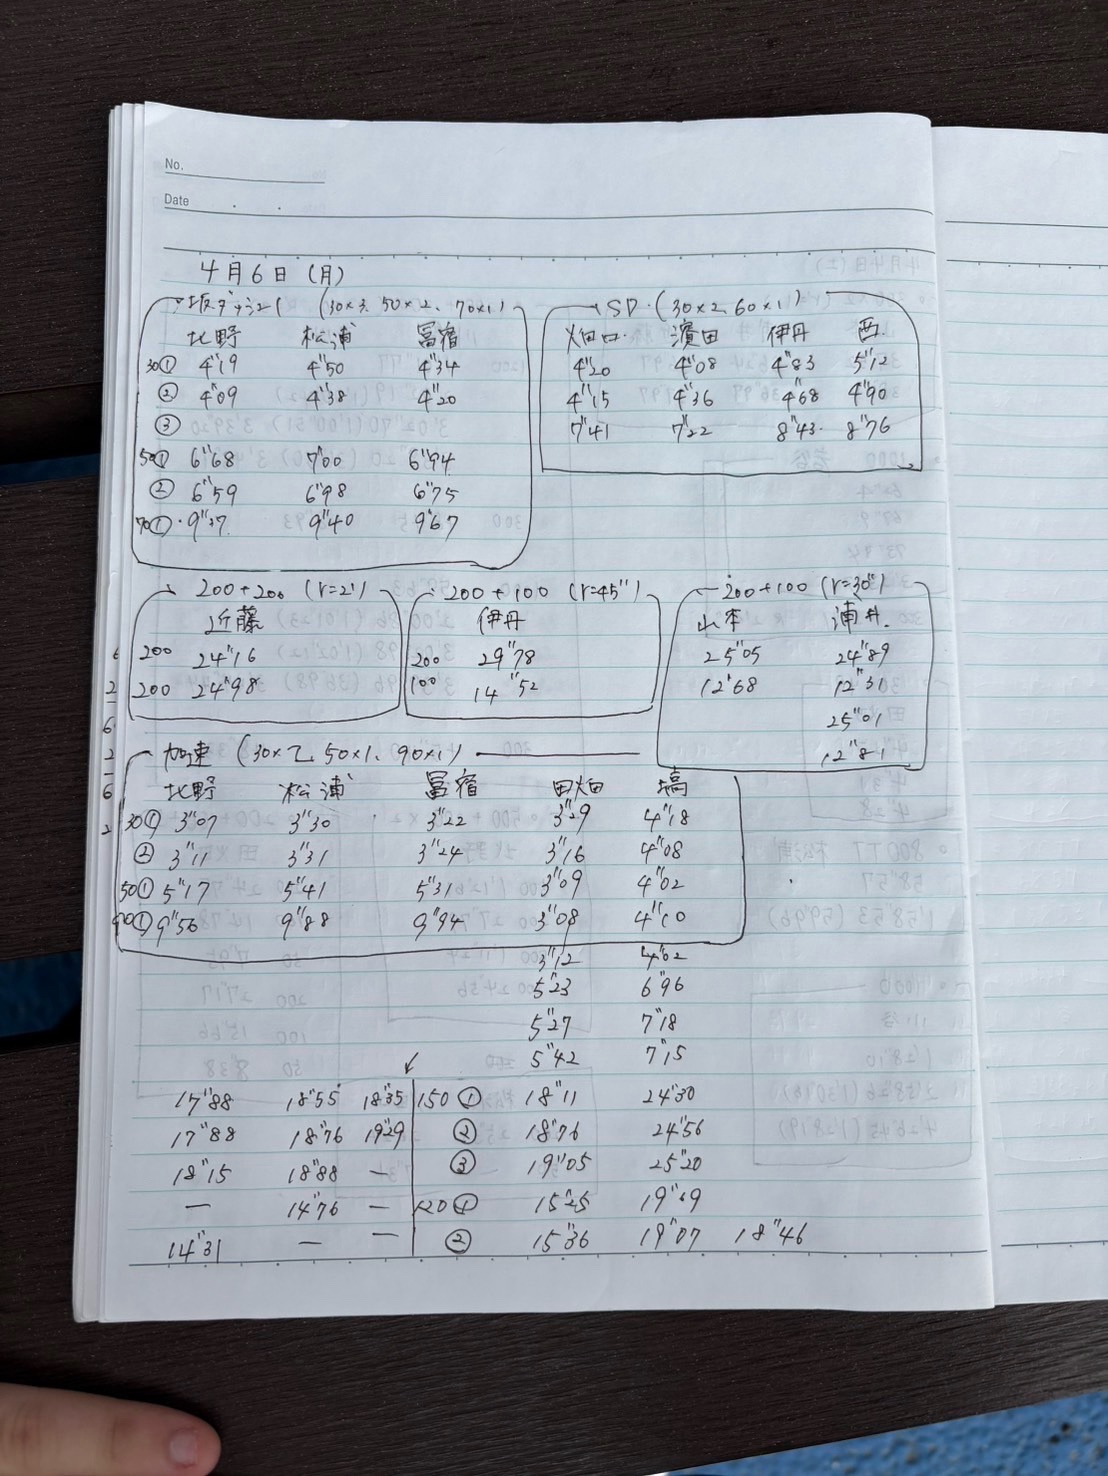 No.
Date
4月6日(月)
坂ダッシュ (30×3, 50×2, 70×1)
北野 松浦 冨宿
30① 4"19 4"50 4"34
② 4"09 4"38 4"20
③
50① 6"68 7"00 6"94
② 6"59 6"98 6"75
70① 9"37 9"40 9"67
SD (30×2, 60×1)
畑口 濱田 伊丹 西
4"20 4"08 4"83 5"12
4"15 4"36 4"68 4"90
7"41 7"22 8"43 8"76
200+200 (r=2')
近藤
200 24"16
200 24"98
200+100 (r=45")
伊丹
200 29"78
100 14"52
200+100 (r=30")
山本 浦井
25"05 24"89
12"68 12"31
25"01
12"81
6
2
6
2
6
2
加速 (30×2, 50×1, 90×1)
北野 松浦 冨宿 田畑 塙
30① 3"07 3"30 3"22 3"29 4"18
② 3"11 3"31 3"24 3"16 4"08
50① 5"17 5"41 5"31 3"09 4"02
90① 9"56 9"88 9"94 3"08 4"10
3"12 4"02
5"23 6"96
5"27 7"18
5"42 7"15
17"88 18"55 18"35 150① 18"11 24"30
17"88 18"76 19"29 ② 18"76 24"56
18"15 18"88 — ③ 19"05 25"20
— 14"76 — 120① 15"25 19"19
14"31 — — ② 15"36 19"07 18"46